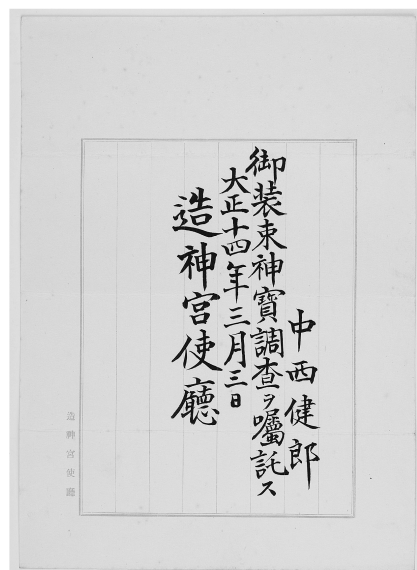 中西健郎
御装束神寶調査ヲ囑託ス
大正十四年三月三日
造神宮使廳
造神宮使廳